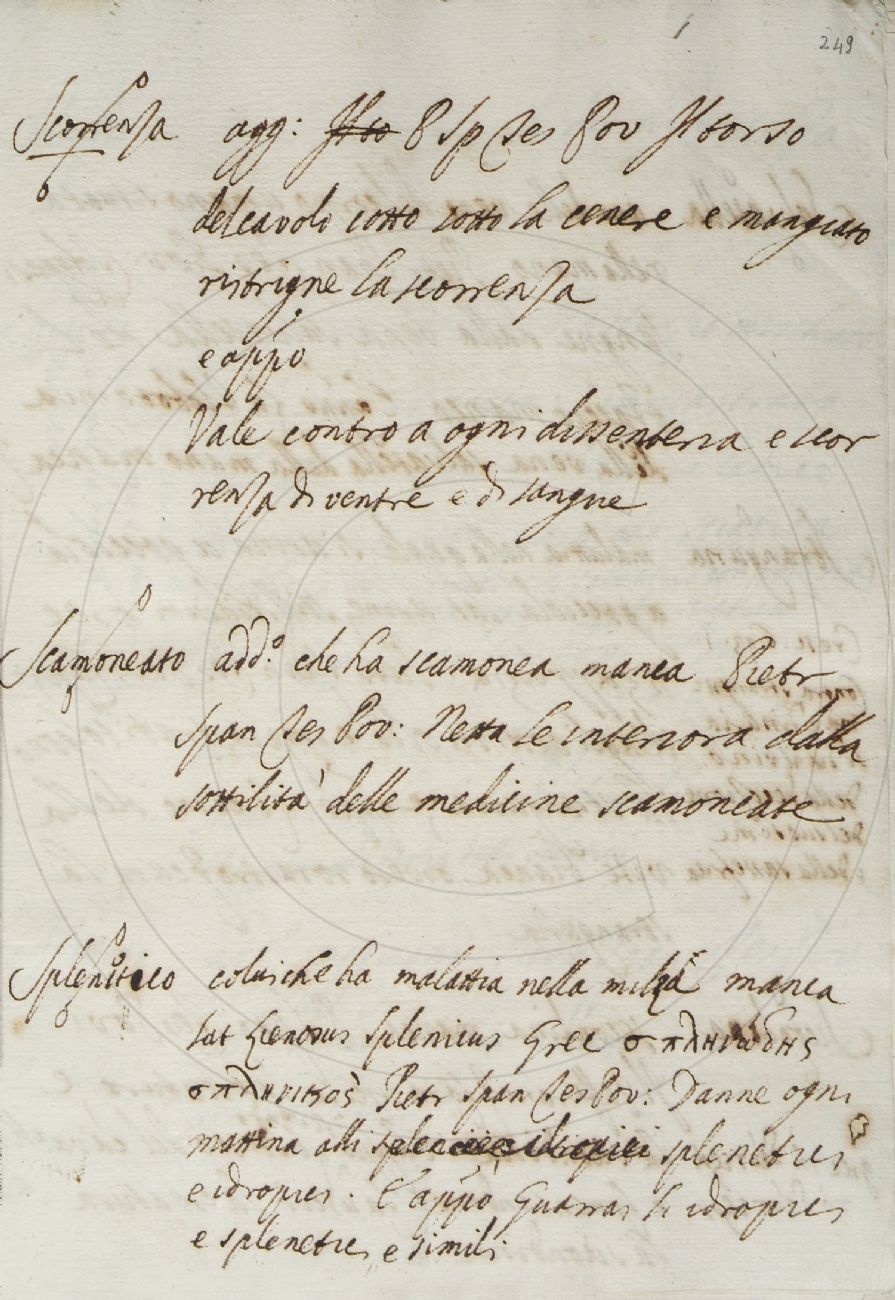 249
Scorrenza agg: Il to P Sp Tes Pov Il torso
del cavolo cotto sotto la cenere e mangiato
ristrigne la scorrenza
e appo
Vale contro a ogni dissenteria e scor
renza di ventre e di sangue
Scamoneato add.º che ha scamonea manca Pietr
Span Tes Pov: Netta le interiora dalla
sottilità delle medicine scamoneate
Splenitico colui che ha malattia nella milza manca
Lat Lienosus Splenicus Grec σπληνιώδης
σπληνικὸς Pietr Span Tes Pov: Danne ogni
mattina alli splenetici
e idropici. E appo Guarrai li idropici
e splenetici e simili